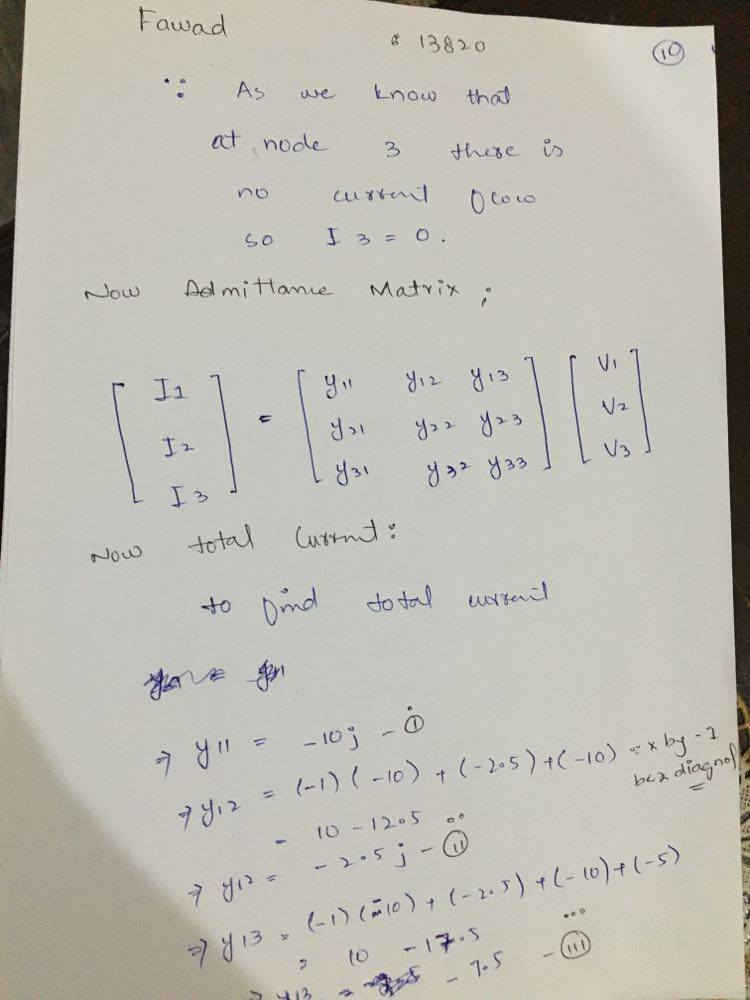 Fawad
13820
10
∵ As we know that
at node 3 there is
no current flow
so I3 = 0.
Now Admittance Matrix;
[I1 I2 I3] = [y11 y12 y13 y21 y22 y23 y31 y32 y33] [V1 V2 V3]
Now total current:
to find total current
⇒ y11 = -10j - (i)
⇒ y12 = (-1)(-10) + (-2.5) + (-10) ∵ x by -1
bcz diagnol
= 10 - 12.5
⇒ y12 = -2.5j - (ii)
⇒ y13 = (-1)(-10) + (-2.5) + (-10) + (-5)
= 10 - 17.5
⇒ y13 = -7.5 - (iii)